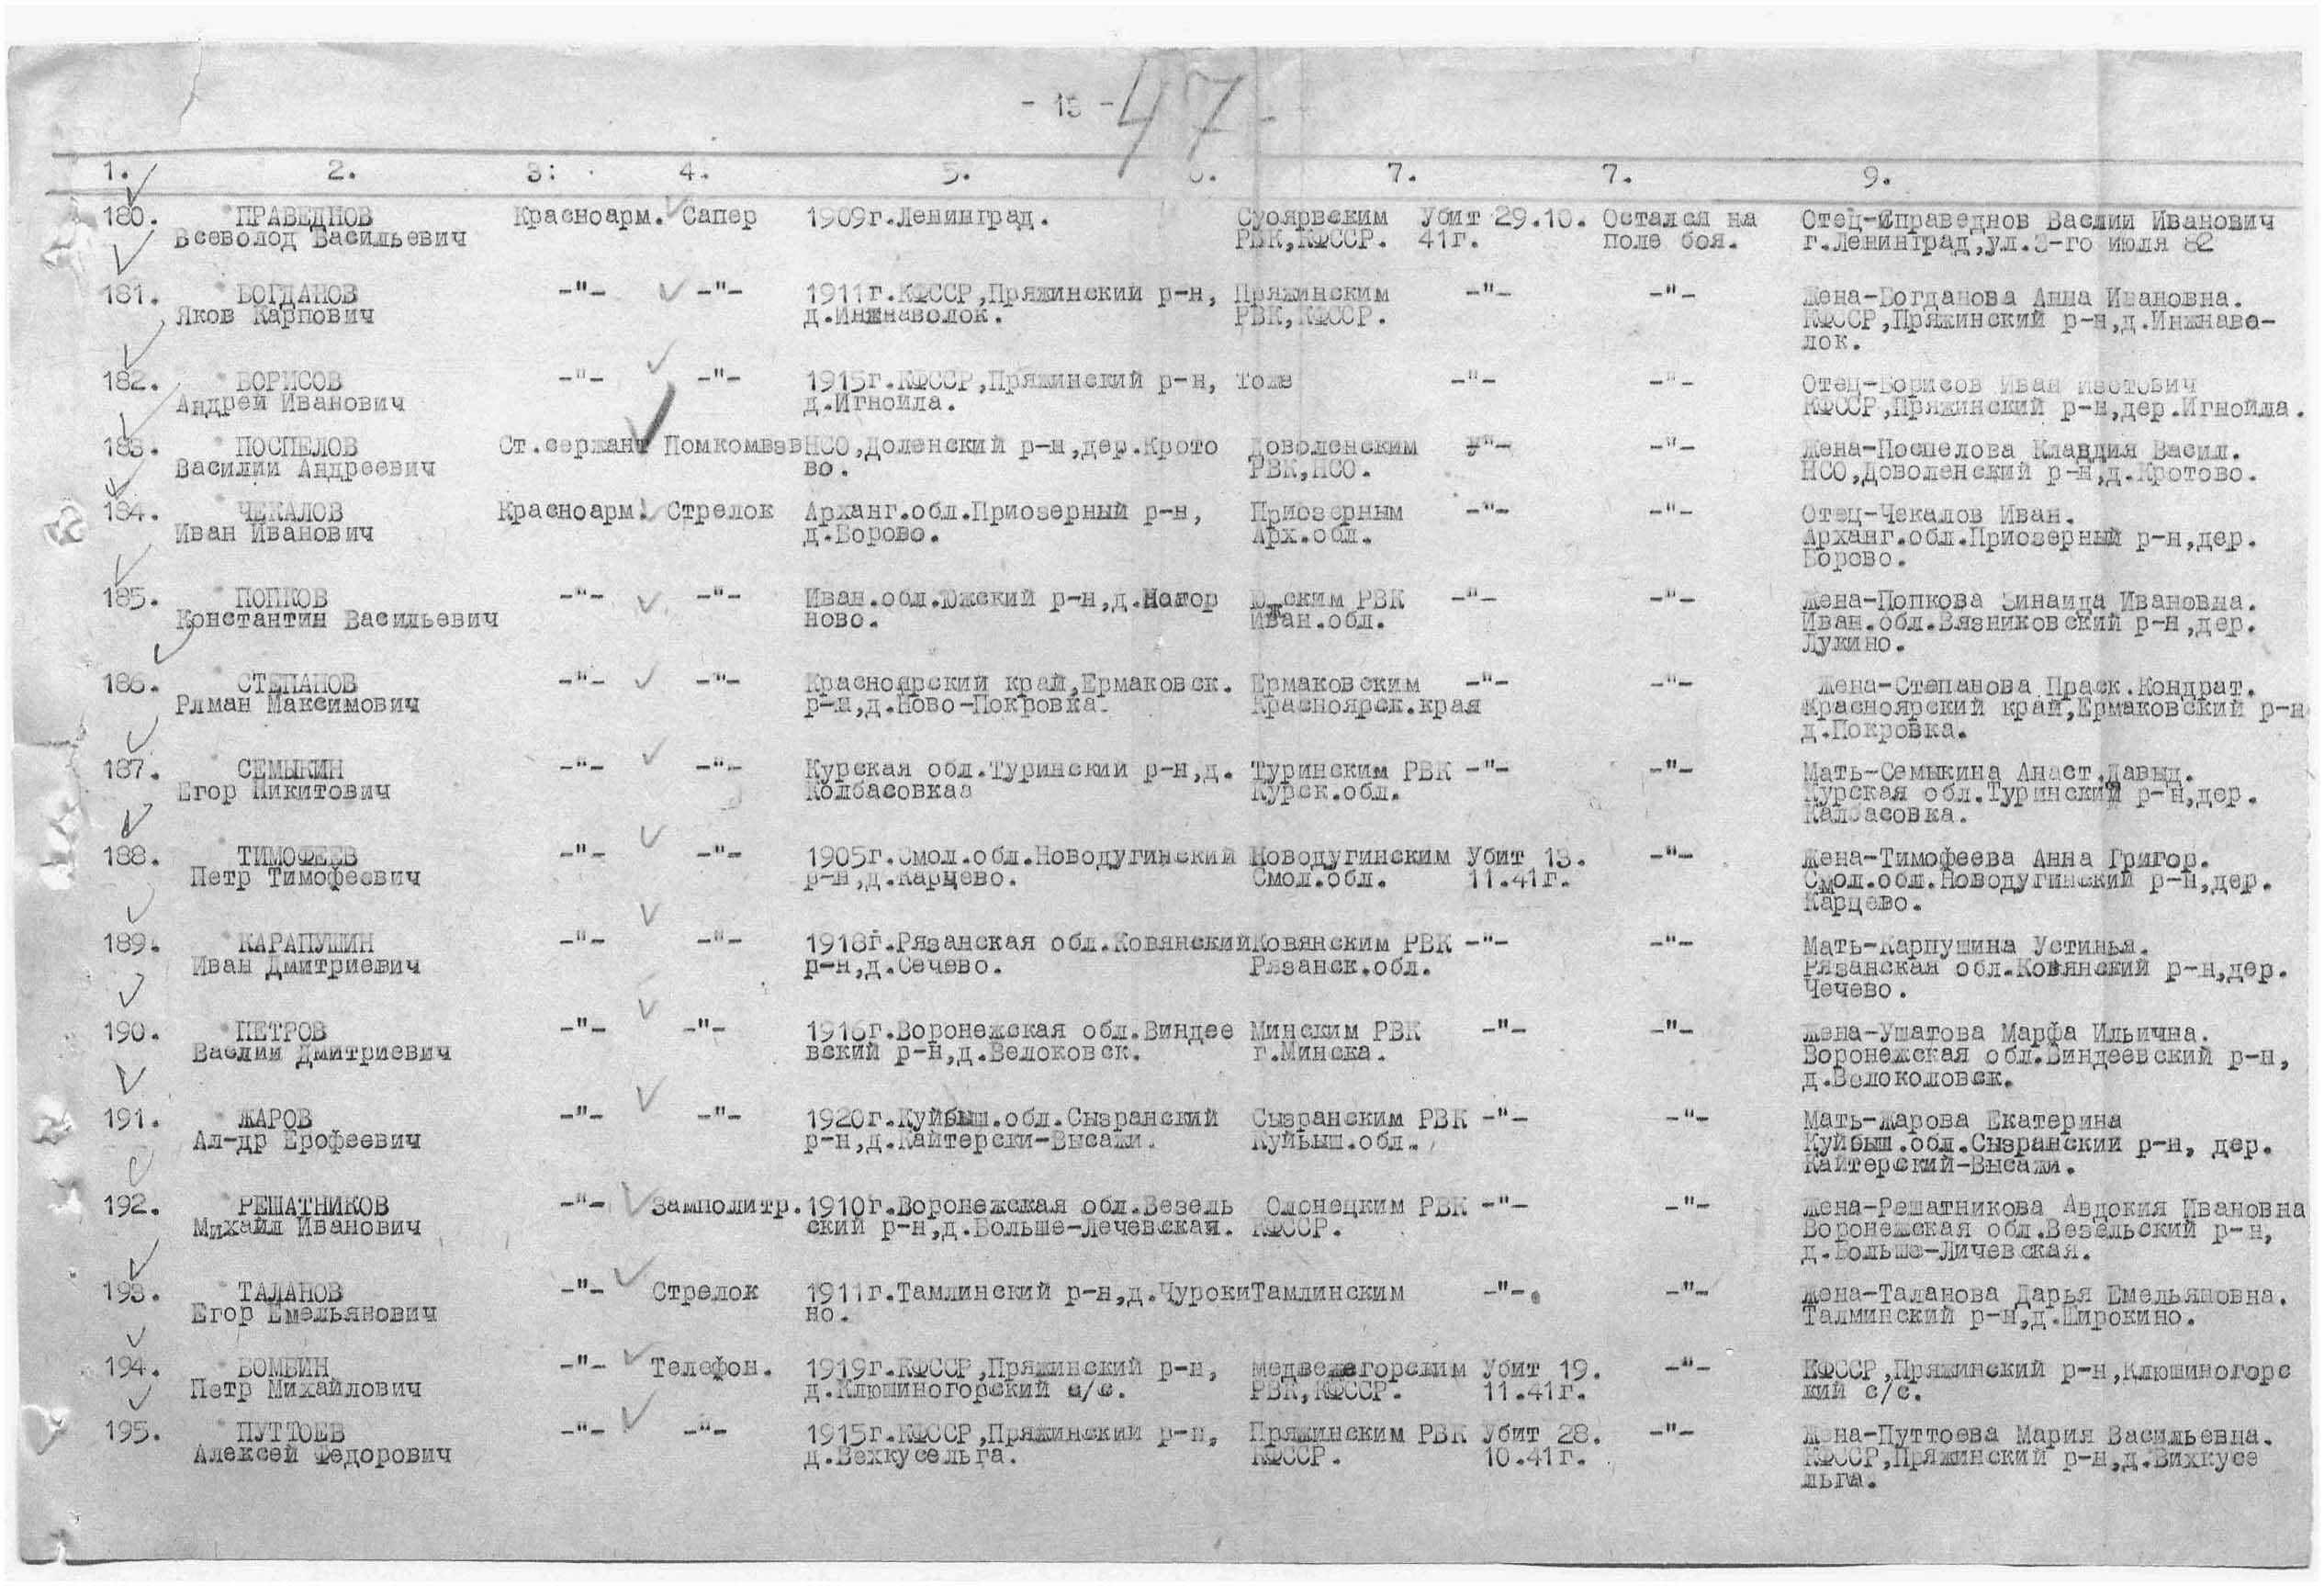 - 15 - 47 -
1. 2. 3: 4. 5. 6. 7. 7. 9.
180. ПРАВЕДНОВ Красноарм. Сапер 1909г.Ленинград. Суоярвским Убит 29.10. Остался на Отец-Справеднов Васлии Иванович
Всеволод Васильевич РВК,КФССР. 41г. поле боя. г.Ленинград,ул.3-го июля 82
181. БОГДАНОВ -"- -"- 1911г.КФССР,Пряжинский р-н, Пряжинским -"- -"- Жена-Богданова Анна Ивановна.
Яков Карпович д.Инжнаволок. РВК,КФССР. КФССР,Пряжинский р-н,д.Инжнаво-
лок.
182. БОРИСОВ -"- -"- 1915г.КФССР,Пряжинский р-н, Тоже -"- -"- Отец-Борисов Иван
Андрей Иванович д.Игноила. КФССР,Пряжинский р-н,дер.Игнойла.
183. ПОСПЕЛОВ Ст.сержант Помкомвзв НСО,Доленский р-н,дер.Крото Доволенским -"- -"- Жена-Поспелова Клавдия Васил.
Василий Андреевич во. РВК,НСО. НСО,Доволенский р-н,д.Кротово.
184. ЧЕКАЛОВ Красноарм. Стрелок Арханг.обл.Приозерный р-н, Приозерным -"- -"- Отец-Чекалов Иван.
Иван Иванович д.Борово. Арх.обл. Арханг.обл.Приозерный р-н,дер.
Борово.
185. ПОПКОВ -"- -"- Иван.обл.Южский р-н,д.Нагор Южским РВК -"- -"- Жена-Попкова Зинаида Ивановна.
Константин Васильевич ново. Иван.обл. Иван.обл.Вязниковский р-н,дер.
Лужино.
186. СТЕПАНОВ -"- -"- Красноярский край,Ермаковск. Ермаковским -"- -"- Жена-Степанова Праск.Кондрат.
Рлман Максимович р-н,д.Ново-Покровка. Красноярск.края Красноярский край,Ермаковский р-н
д.Покровка.
187. СЕМЫКИН -"- -"- Курская обл.Туринский р-н,д. Туринским РВК -"- -"- Мать-Семыкина Анаст.Давыд.
Егор Никитович Колбасовкаа Курск.обл. Курская обл.Туринский р-н,дер.
Калбасовка.
188. ТИМОФЕЕВ -"- -"- 1905г.Смол.обл.Новодугинский Новодугинским Убит 13. -"- Жена-Тимофеева Анна Григор.
Петр Тимофеевич р-н,д.Карцево. Смол.обл. 11.41г. Смол.обл.Новодугинский р-н,дер.
Карцево.
189. КАРАПУШИН -"- -"- 1918г.Рязанская обл.Ковянский Ковянским РВК -"- -"- Мать-Карпушина Устинья.
Иван Дмитриевич р-н,д.Сечево. Рязанск.обл. Рязанская обл.Ковянский р-н,дер.
Чечево.
190. ПЕТРОВ -"- -"- 1916г.Воронежская обл.Виндее Минским РВК -"- -"- Жена-Ушатова Марфа Ильична.
Васлии Дмитриевич вский р-н,д.Велоковск. г.Минска. Воронежская обл.Виндеевский р-н,
д.Волоколовск.
191. ЖАРОВ -"- -"- 1920г.Куйбыш.обл.Сызранский Сызранским РВК -"- -"- Мать-Жарова Екатерина
Ал-др Ерофеевич р-н,д.Кайтерски-Высажи. Куйбыш.обл. Куйбыш.обл.Сызранский р-н, дер.
Кайтерский-Высажи.
192. РЕШАТНИКОВ -"- Замполитр. 1910г.Воронежская обл.Везель Олонецким РВК -"- -"- Жена-Решатникова Авдокия Ивановна
Михайл Иванович ский р-н,д.Больше-Лечевская. КФССР. Воронежская обл.Везельский р-н,
д.Больше-Личевская.
193. ТАЛАНОВ -"- Стрелок 1911г.Тамлинский р-н,д.Чуроки Тамлинским -"-. -"- Жена-Таланова Дарья Емельяновна.
Егор Емельянович но. Талминский р-н,д.Широкино.
194. БОМБИН -"- Телефон. 1919г.КФССР,Пряжинский р-н, Медвежегорским Убит 19. -"- КФССР,Пряжинский р-н,Клюшиногорс
Петр Михайлович д.Клюшиногорский с/с. РВК,КФССР. 11.41г. кий с/с.
195. ПУТТОЕВ -"- -"- 1915г.КФССР,Пряжинский р-н, Пряжинским РВК Убит 28. -"- Жена-Путтоева Мария Васильевна.
Алексей Федорович д.Вехкусельга. КФССР. 10.41г. КФССР,Пряжинский р-н,д.Вихкусе
льга.